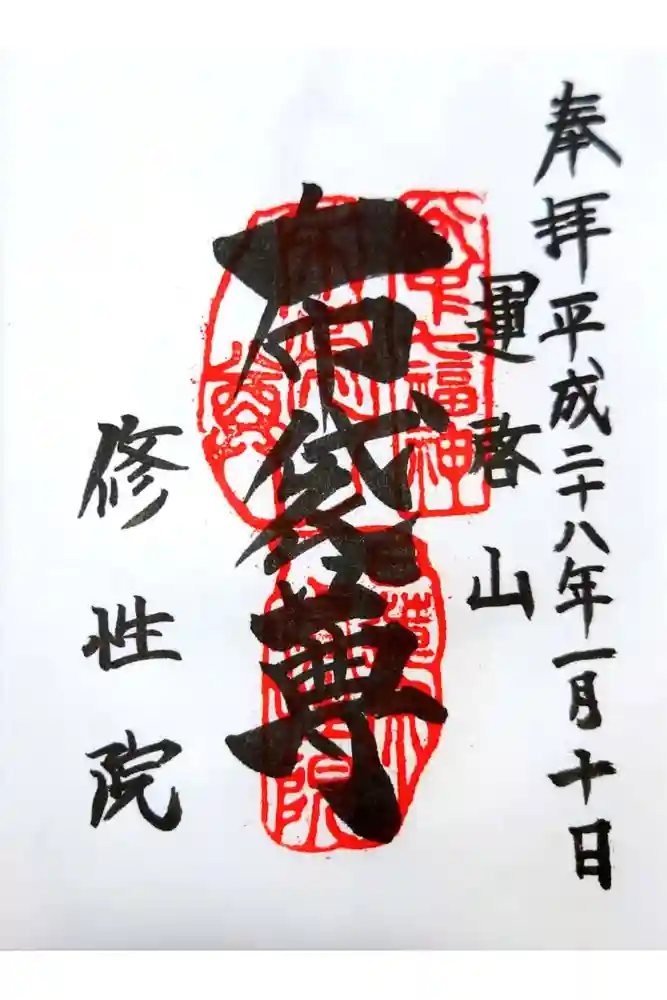 奉拝 平成二十八年一月十日
運啓山
布袋尊
修性院
谷中七福神